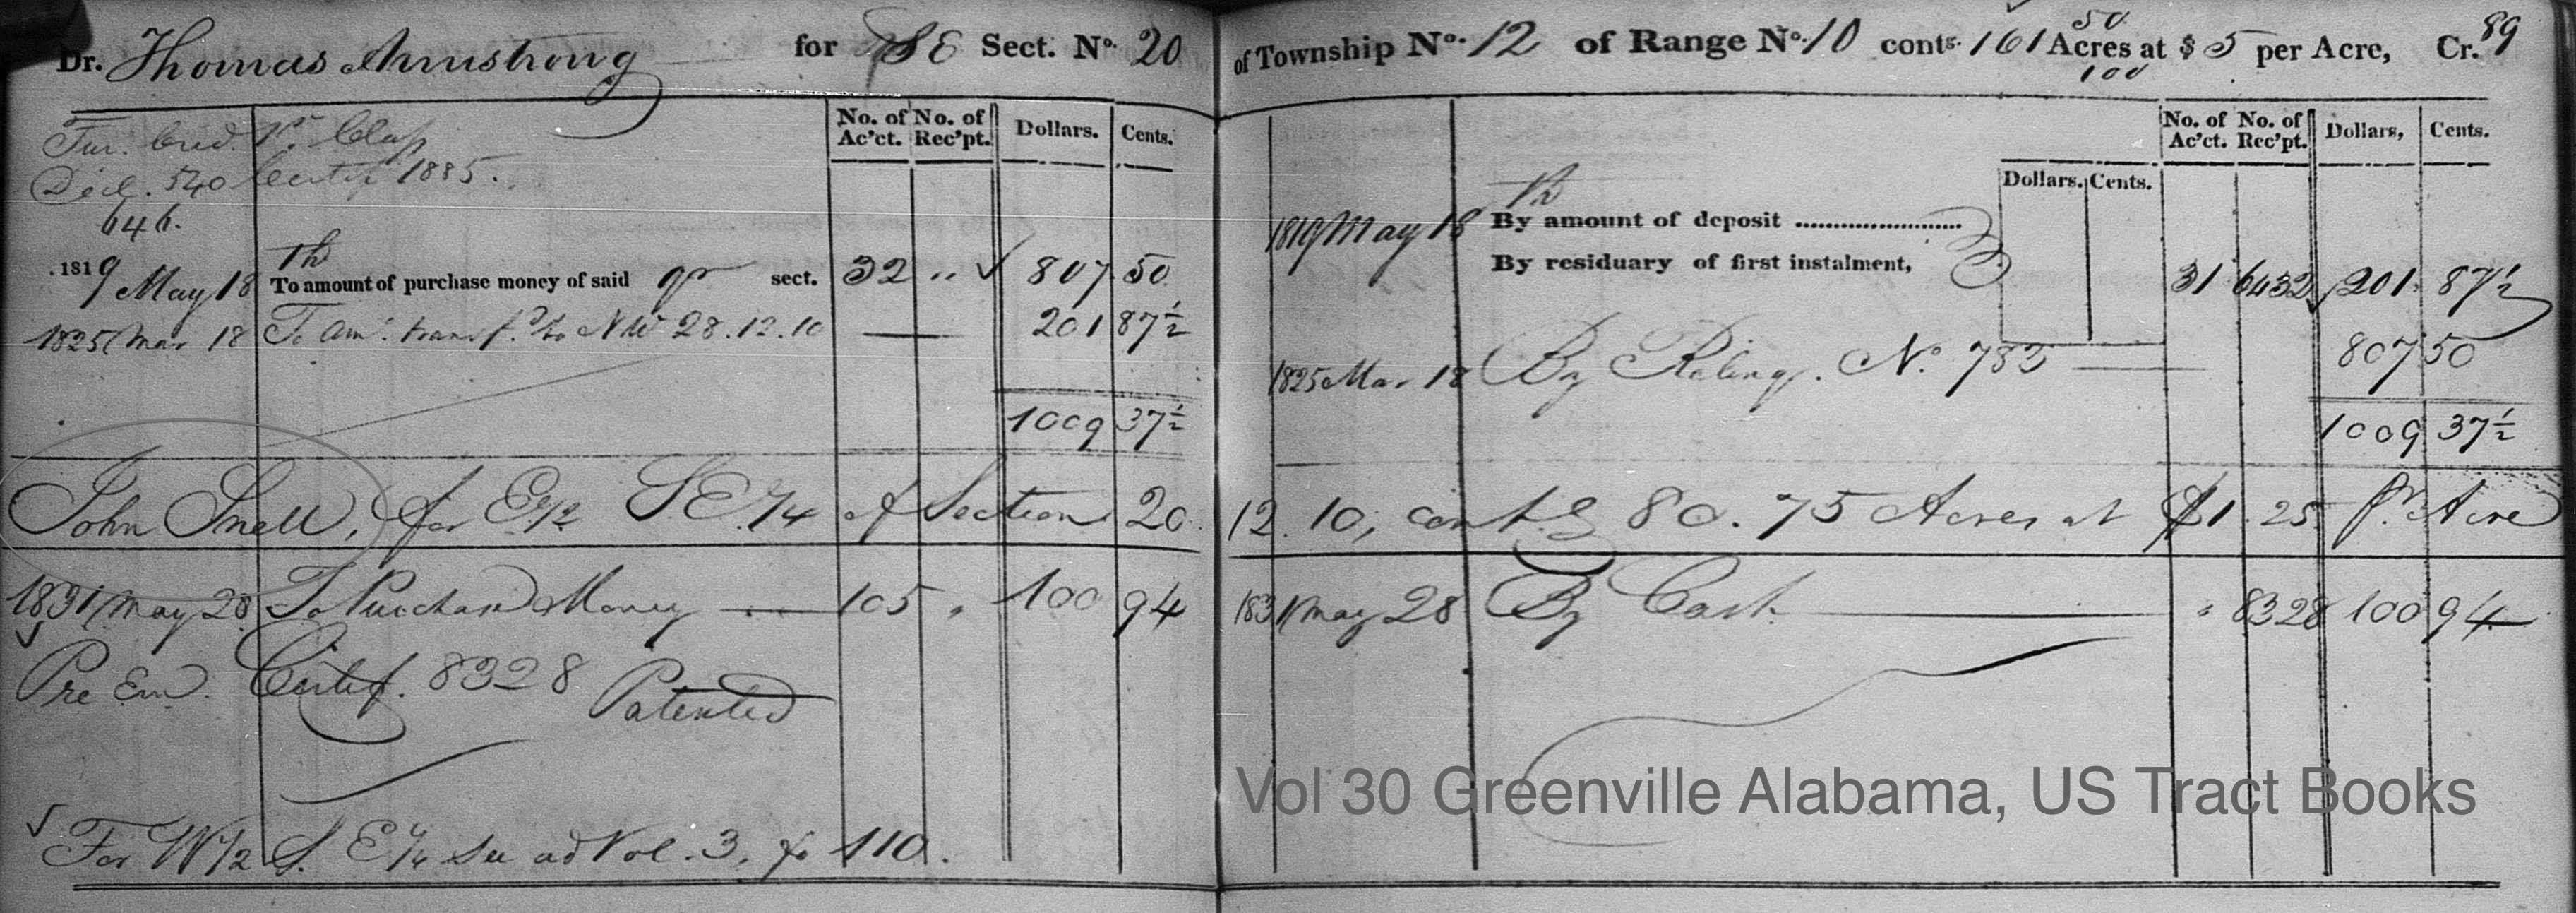 Dr. Thomas Armstrong for SE Sect. No. 20 of Township No. 12 of Range No. 10 conts. 161 50/100 Acres at $5 per Acre, Cr. 89
No. of Ac'ct. No. of Rec'pt. Dollars. Cents.
No. of Ac'ct. No. of Rec'pt. Dollars, Cents.
Dollars. Cents.
Fur. Cred. 1st Class
Decl. 540 Certif 1885.
646.
1819 May 18th By amount of deposit
By residuary of first instalment, 31 6432 201 87½
1819 May 18th To amount of purchase money of said qr sect. 32 " 807 50
1825 Mar 18 To amt. transfd. to NW 28.12.10 201 87½
1825 Mar 18 By Relinqt. No. 783 807 50
1009 37½
1009 37½
John Snell, for E1/2 S.E.1/4 of Section 20. 12. 10, contg 80.75 Acres at $1.25 pr. Acre
1831 May 28 To Purchase Money 105 " 100 94
1831 May 28 By Cash " 8328 100 94
Pre Em. Certif. 8328 Patented
Vol 30 Greenville Alabama, US Tract Books
For W1/2 S. E1/4 See ad Vol. 3. fo 110.